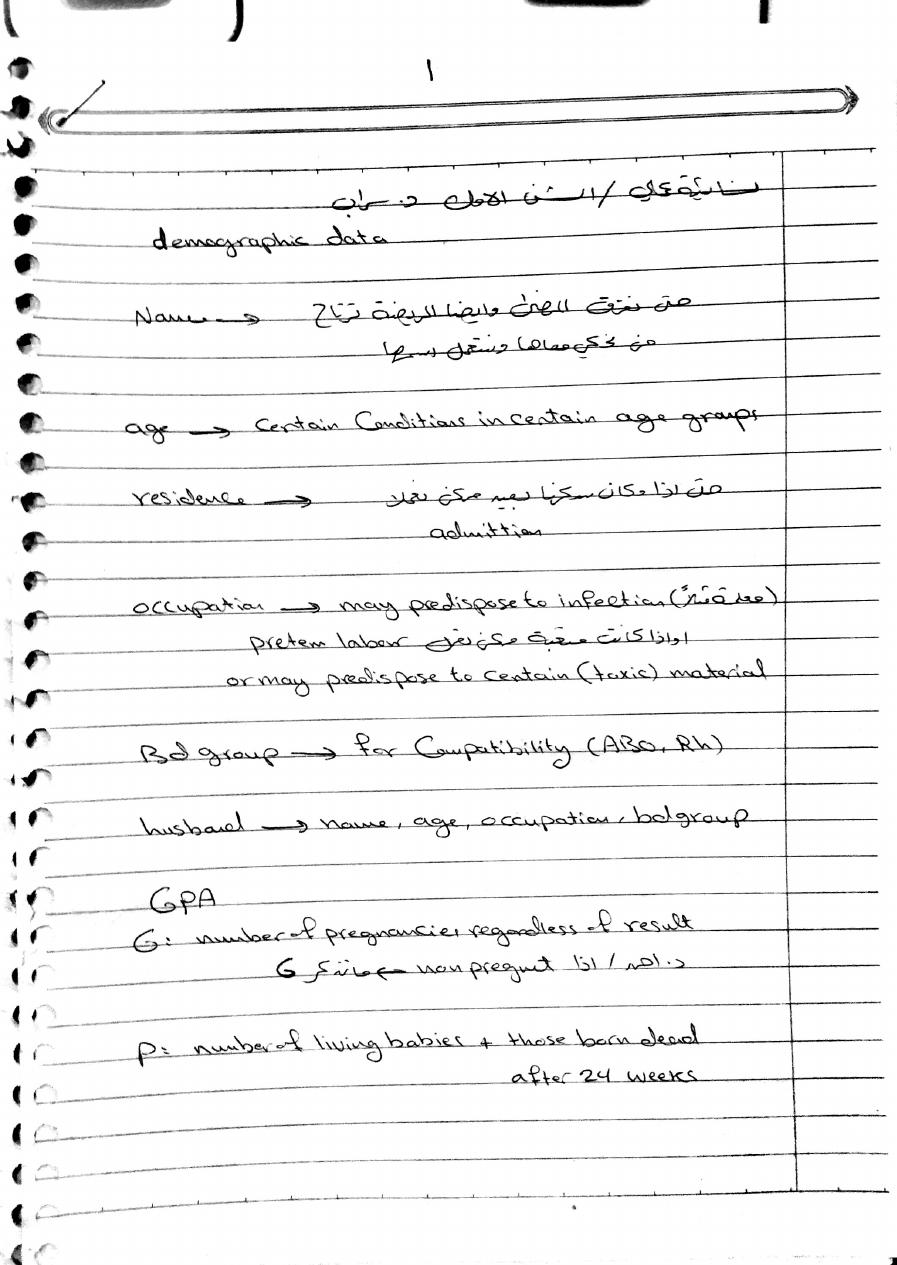 1
نسائية عملي / السشن الاول د. سراب
demographic data
Name → حتى نعرف المريض وايضا المريضة ترتاح
من نحكي معاها ونستعمل اسمها
age → Certain Conditions in certain age groups
residence → حتى اذا كان سكنها بعيد ممكن نعملا
admittion
occupation → may predispose to infection (معلمة مثلاً)
pretem labour اواذا كانت متعبة ممكن تعمل
or may predispose to certain (toxic) material
Bd group → for Compatibility (ABO, Rh)
husband → name, age, occupation, bdgroup
GPA
G: number of pregnancies regardless of result
د. احمد / اذا non pregnut ← مانذكر G
P: number of living babies + those born dead
after 24 weeks